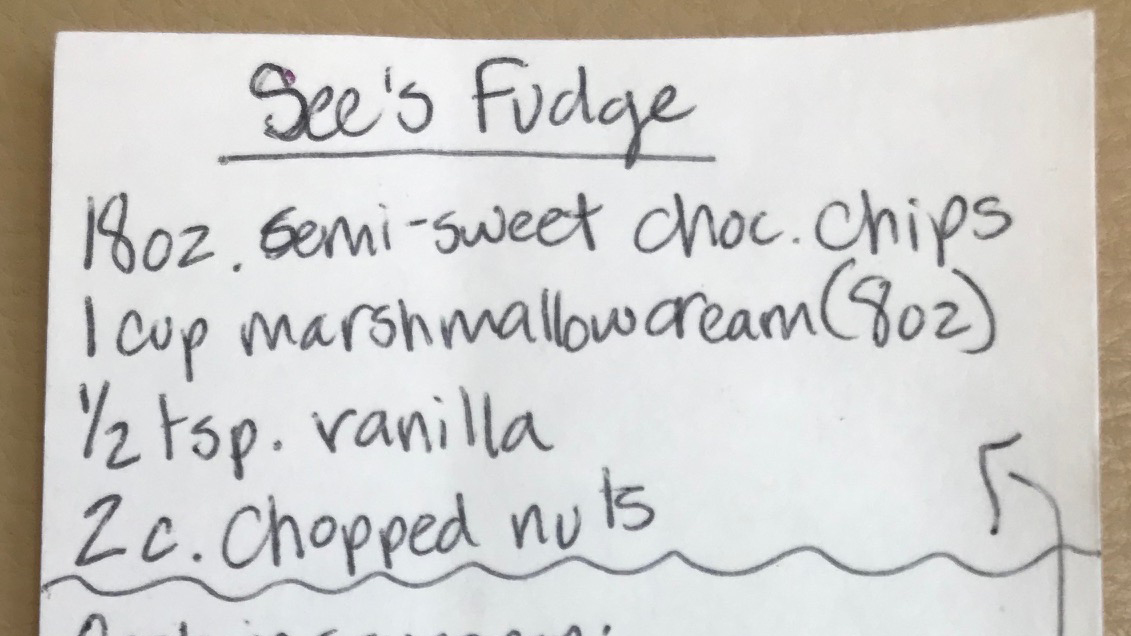 See's Fudge
18oz. semi-sweet choc. chips
1 cup marshmallow cream (8oz)
1/2 tsp. vanilla
2 c. Chopped nuts